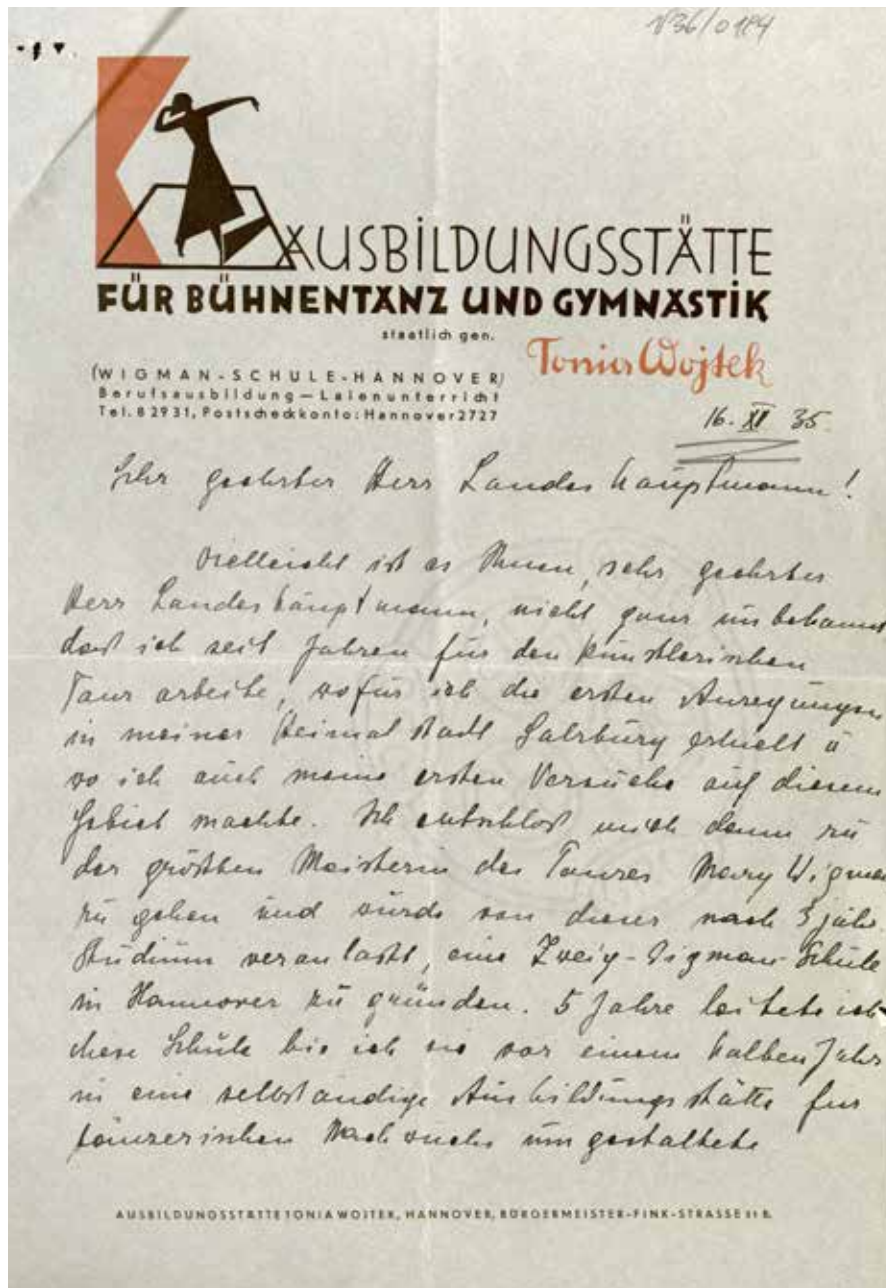 V36/0184
AUSBILDUNGSSTÄTTE
FÜR BÜHNENTANZ UND GYMNASTIK
staatlich gen.
Tonia Wojtek
(WIGMAN-SCHULE-HANNOVER)
Berufsausbildung—Laienunterricht
Tel. 82931, Postscheckkonto: Hannover 2727
16. XI 35.
Sehr geehrter Herr Landeshauptmann!
Vielleicht ist es Ihnen, sehr geehrter
Herr Landeshauptmann, nicht ganz unbekannt
daß ich seit Jahren für den künstlerischen
Tanz arbeite, wofür ich die ersten Anregungen
in meiner Heimatstadt Salzburg erhielt u
wo ich auch meine ersten Versuche auf diesem
Gebiet machte. Ich entschloß mich dann zu
der größten Meisterin des Tanzes Mary Wigman
zu gehen und wurde von dieser nach 3 jähr.
Studium veranlaßt, eine Zweig-Wigman-Schule
in Hannover zu gründen. 5 Jahre leitete ich
diese Schule bis ich sie vor einem halben Jahr
in eine selbständige Ausbildungsstätte für
tänzerischen Nachwuchs umgestaltete
AUSBILDUNGSSTÄTTE TONIA WOJTEK, HANNOVER, BÜRGERMEISTER-FINK-STRASSE 21 B.